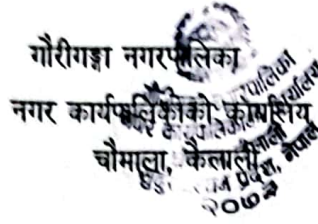 गौरीगङ्गा नगरपालिका
नगर कार्यपालिकाको कार्यालय
चौमाला, कैलाली
नेपाल
२०७३